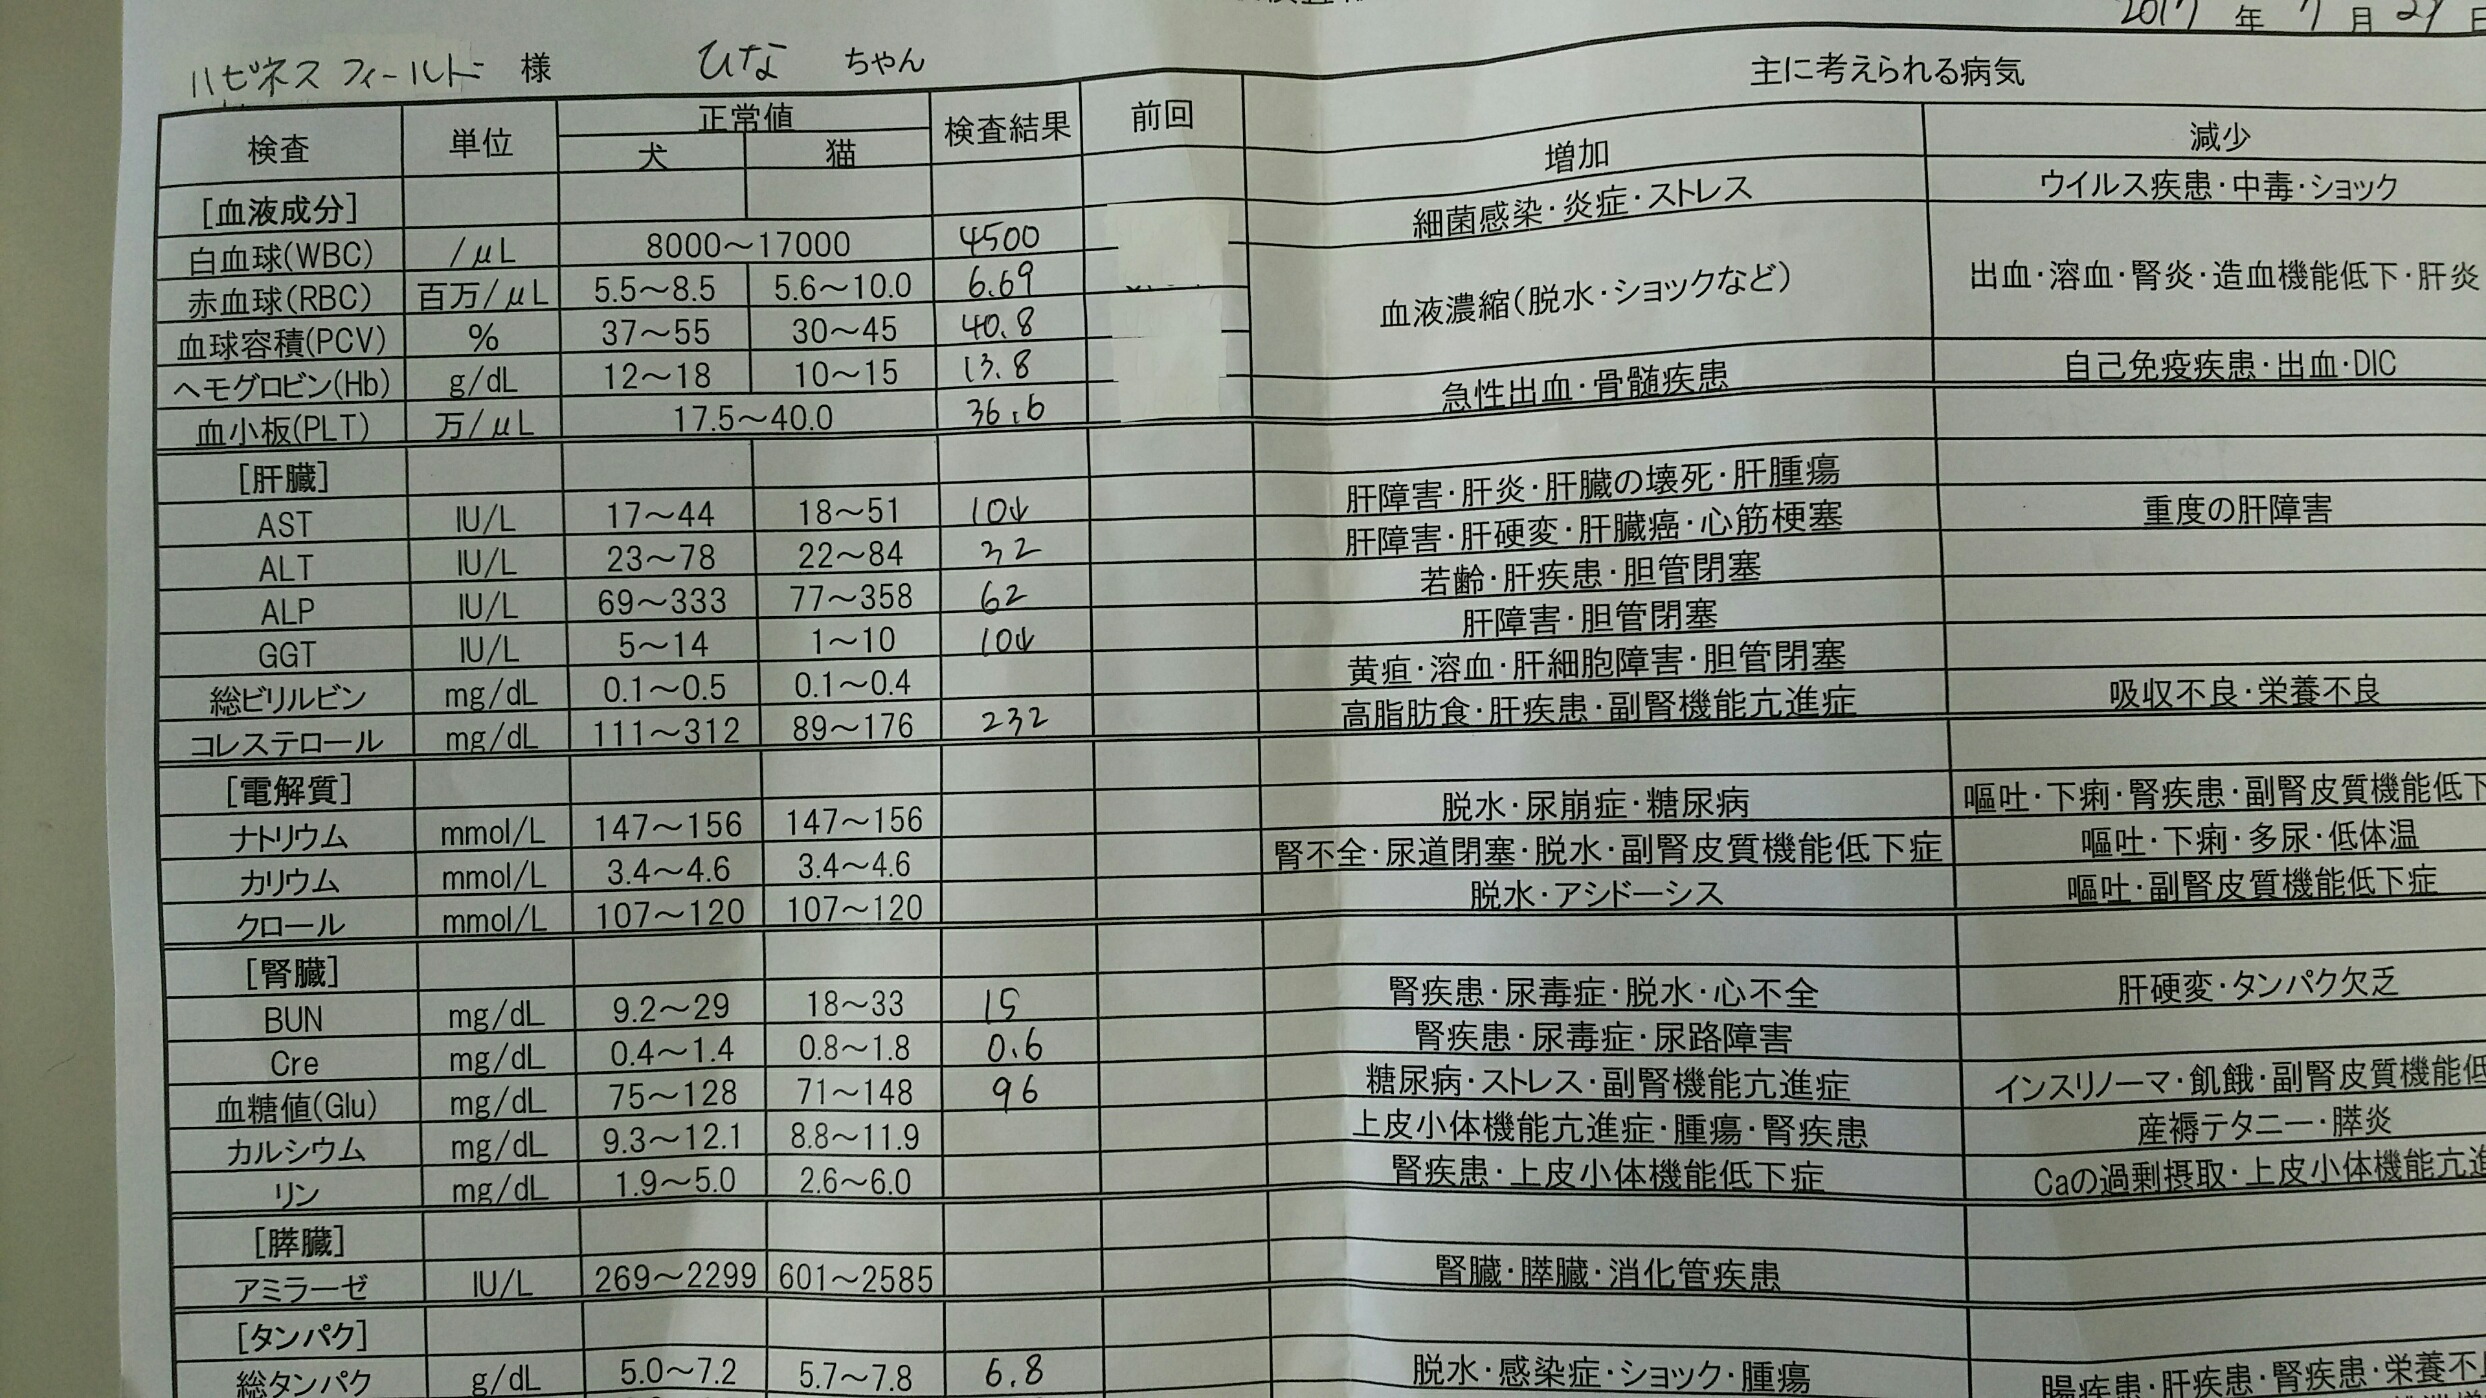 2017 年 7 月 29 日
ハピネスフィールド 様 ひな ちゃん
検査 単位 正常値 検査結果 前回 主に考えられる病気
犬 猫 増加 減少
[血液成分]
白血球(WBC) /μL 8000～17000 4500 細菌感染・炎症・ストレス ウイルス疾患・中毒・ショック
赤血球(RBC) 百万/μL 5.5～8.5 5.6～10.0 6.69 血液濃縮(脱水・ショックなど) 出血・溶血・腎炎・造血機能低下・肝炎
血球容積(PCV) % 37～55 30～45 40.8
ヘモグロビン(Hb) g/dL 12～18 10～15 13.8
血小板(PLT) 万/μL 17.5～40.0 36.6 急性出血・骨髄疾患 自己免疫疾患・出血・DIC
[肝臓]
AST IU/L 17～44 18～51 10↓ 肝障害・肝炎・肝臓の壊死・肝腫瘍
ALT IU/L 23～78 22～84 32 肝障害・肝硬変・肝臓癌・心筋梗塞 重度の肝障害
ALP IU/L 69～333 77～358 62 若齢・肝疾患・胆管閉塞
GGT IU/L 5～14 1～10 10↓ 肝障害・胆管閉塞
総ビリルビン mg/dL 0.1～0.5 0.1～0.4 黄疸・溶血・肝細胞障害・胆管閉塞
コレステロール mg/dL 111～312 89～176 232 高脂肪食・肝疾患・副腎機能亢進症 吸収不良・栄養不良
[電解質]
ナトリウム mmol/L 147～156 147～156 脱水・尿崩症・糖尿病 嘔吐・下痢・腎疾患・副腎皮質機能低下
カリウム mmol/L 3.4～4.6 3.4～4.6 腎不全・尿道閉塞・脱水・副腎皮質機能低下症 嘔吐・下痢・多尿・低体温
クロール mmol/L 107～120 107～120 脱水・アシドーシス 嘔吐・副腎皮質機能低下症
[腎臓]
BUN mg/dL 9.2～29 18～33 15 腎疾患・尿毒症・脱水・心不全 肝硬変・タンパク欠乏
Cre mg/dL 0.4～1.4 0.8～1.8 0.6 腎疾患・尿毒症・尿路障害
血糖値(Glu) mg/dL 75～128 71～148 96 糖尿病・ストレス・副腎機能亢進症 インスリノーマ・飢餓・副腎皮質機能低
カルシウム mg/dL 9.3～12.1 8.8～11.9 上皮小体機能亢進症・腫瘍・腎疾患 産褥テタニー・膵炎
リン mg/dL 1.9～5.0 2.6～6.0 腎疾患・上皮小体機能低下症 Caの過剰摂取・上皮小体機能亢進
[膵臓]
アミラーゼ IU/L 269～2299 601～2585 腎臓・膵臓・消化管疾患
[タンパク]
総タンパク g/dL 5.0～7.2 5.7～7.8 6.8 脱水・感染症・ショック・腫瘍 腸疾患・肝疾患・腎疾患・栄養不